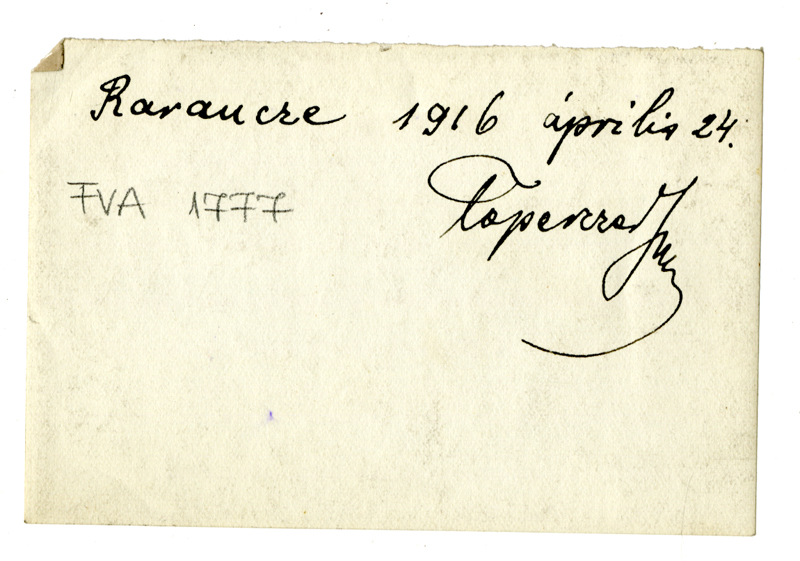 Rarancze 1916 április 24.
FVA 1777
Taperczer